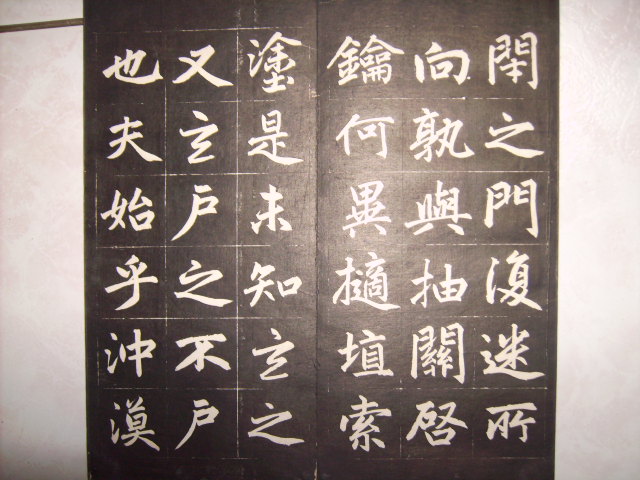 閉之門復迷所
向孰與抽關啓
鑰何異擿埴索
塗是未知玄之
又玄戶之不戶
也夫始乎沖漠